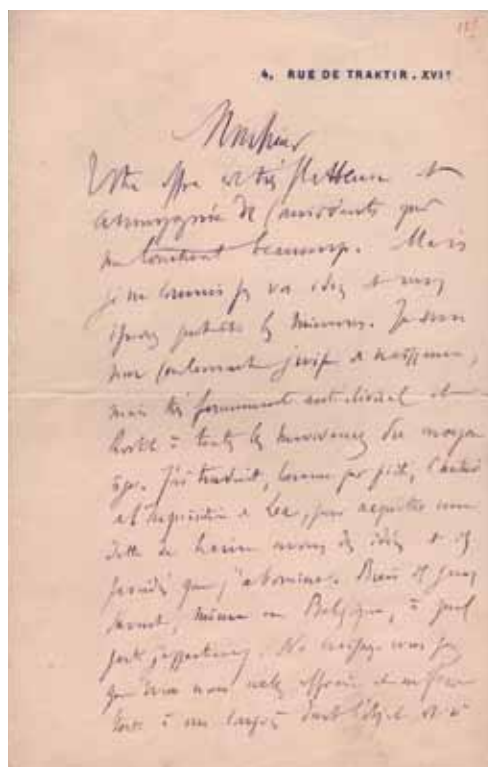 4, RUE DE TRAKTIR. XVIe
Monsieur
Votre offre est très flatteuse et
accompagnée de considérants qui
me touchent beaucoup. Mais
je ne connais pas vos idées et vous
ignorez peut-être les miennes. Je suis
non seulement juif de naissance,
mais très fermement anti-clérical et
hostile à toutes les survivances du moyen
âge. J'ai traduit, comme par piété, l'histoire
de l'Inquisition de Lea, pour acquitter une
dette de haine envers des idées et des
procédés que j'abomine. Bien des gens
savent, même en Belgique, à quel
parti j'appartiens. Ne craignez-vous pas
que mon nom